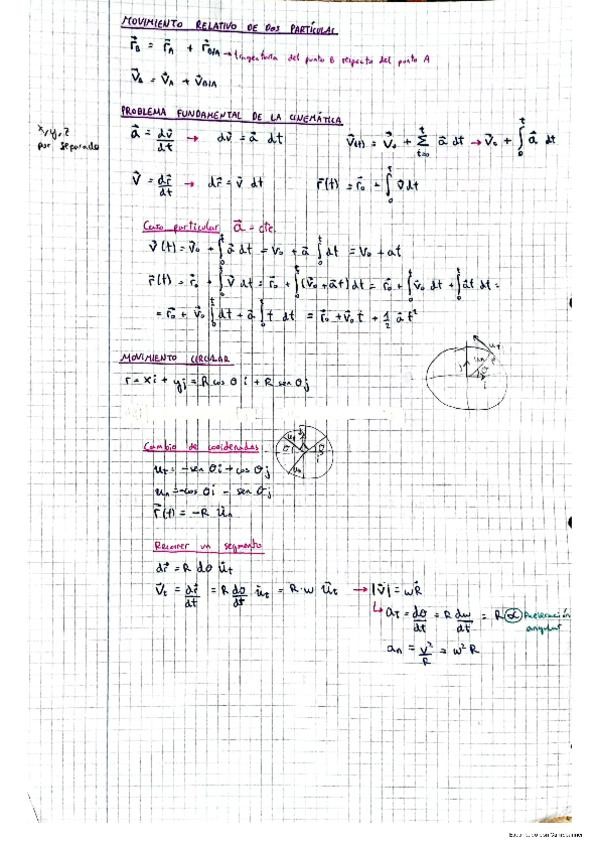 MOVIMIENTO RELATIVO DE DOS PARTÍCULAS
r⃗B = r⃗A + r⃗B/A → trayectoria del punto B respecto del punto A
v⃗B = v⃗A + v⃗B/A
PROBLEMA FUNDAMENTAL DE LA CINEMÁTICA
x, y, z
por separado
a⃗ = dv⃗/dt → dv⃗ = a⃗ dt v⃗(t) = v⃗₀ + Σ(t=0, t) a⃗ dt → v⃗₀ + ∫₀ᵗ a⃗ dt
v⃗ = dr⃗/dt → dr⃗ = v⃗ dt r⃗(t) = r⃗₀ + ∫₀ᵗ v⃗ dt
Caso particular a⃗ = cte
v⃗(t) = v⃗₀ + ∫₀ᵗ a⃗ dt = v₀ + a⃗ ∫₀ᵗ dt = v₀ + at
r⃗(t) = r⃗₀ + ∫₀ᵗ v⃗ dt = r⃗₀ + ∫₀ᵗ (v⃗₀ + a⃗t) dt = r⃗₀ + ∫₀ᵗ v⃗₀ dt + ∫₀ᵗ a⃗t dt =
= r⃗₀ + v⃗₀ ∫₀ᵗ dt + a⃗ ∫₀ᵗ t dt = r⃗₀ + v⃗₀ t + 1/2 a⃗ t²
MOVIMIENTO CIRCULAR
r = xi + yj = R cos θ i + R sen θ j
Cambio de coordenadas
u_t = -sen θi + cos θj
u_n = -cos θi - sen θj
r⃗(t) = -R u⃗n
Recorrer un segmento
dr⃗ = R dθ u⃗t
v⃗t = dr⃗/dt = R dθ/dt u⃗t = R·w u⃗t → |v⃗| = wR
↳ aT = dv/dt = R dw/dt = R α Aceleración
angular
an = v²/R = w² R